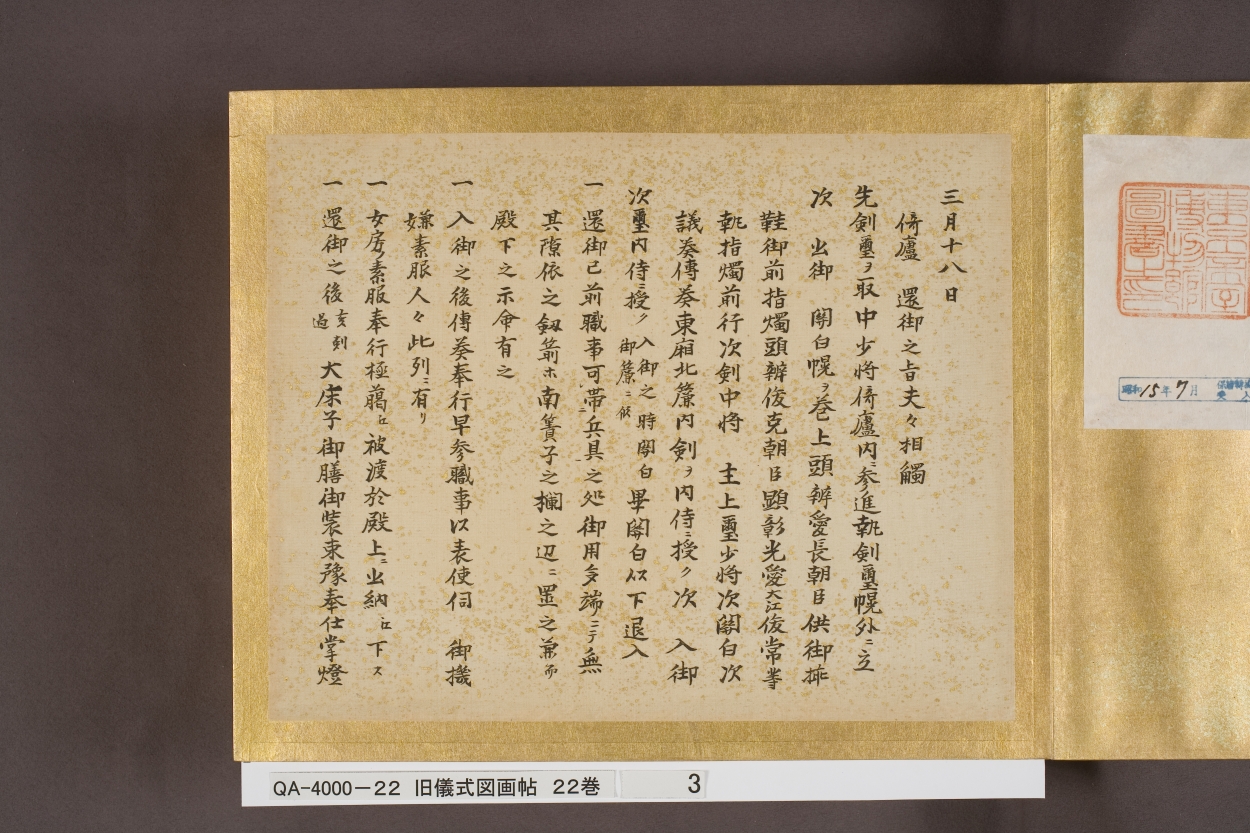 三月十八日
倚廬 還御之旨夫々相觸
先劍璽ヲ取中少將倚廬内ニ参進執劍璽幌外ニ立
次 出御 関白幌ヲ巻上頭辨愛長朝臣供御挿
鞋御前指燭頭辨俊克朝臣顕彰光愛大江俊常等
執指燭前行次剣中将 主上璽少将次関白次
議奏傳奏東廂北簾内剣ヲ内侍ニ授ク次 入御
次璽内侍ニ授ク 入御之時関白御簾ニ候 畢関白以下退入
一還御已前職事可帯兵具之処御用多端ニテ無
其隙依之劔箭ホ南簀子之欄之辺ニ置之兼而
殿下之示命有之
一入御之後傳奏奉行早参職事以表使伺 御機
嫌素服人々此列ニ有リ
一女房素服奉行極﨟江被渡於殿上ニ出納江下ス
一還御之後亥刻過大床子御膳御装束豫奉仕掌燈
昭和15年7月
QA-4000-22 旧儀式図画帖 22巻 3